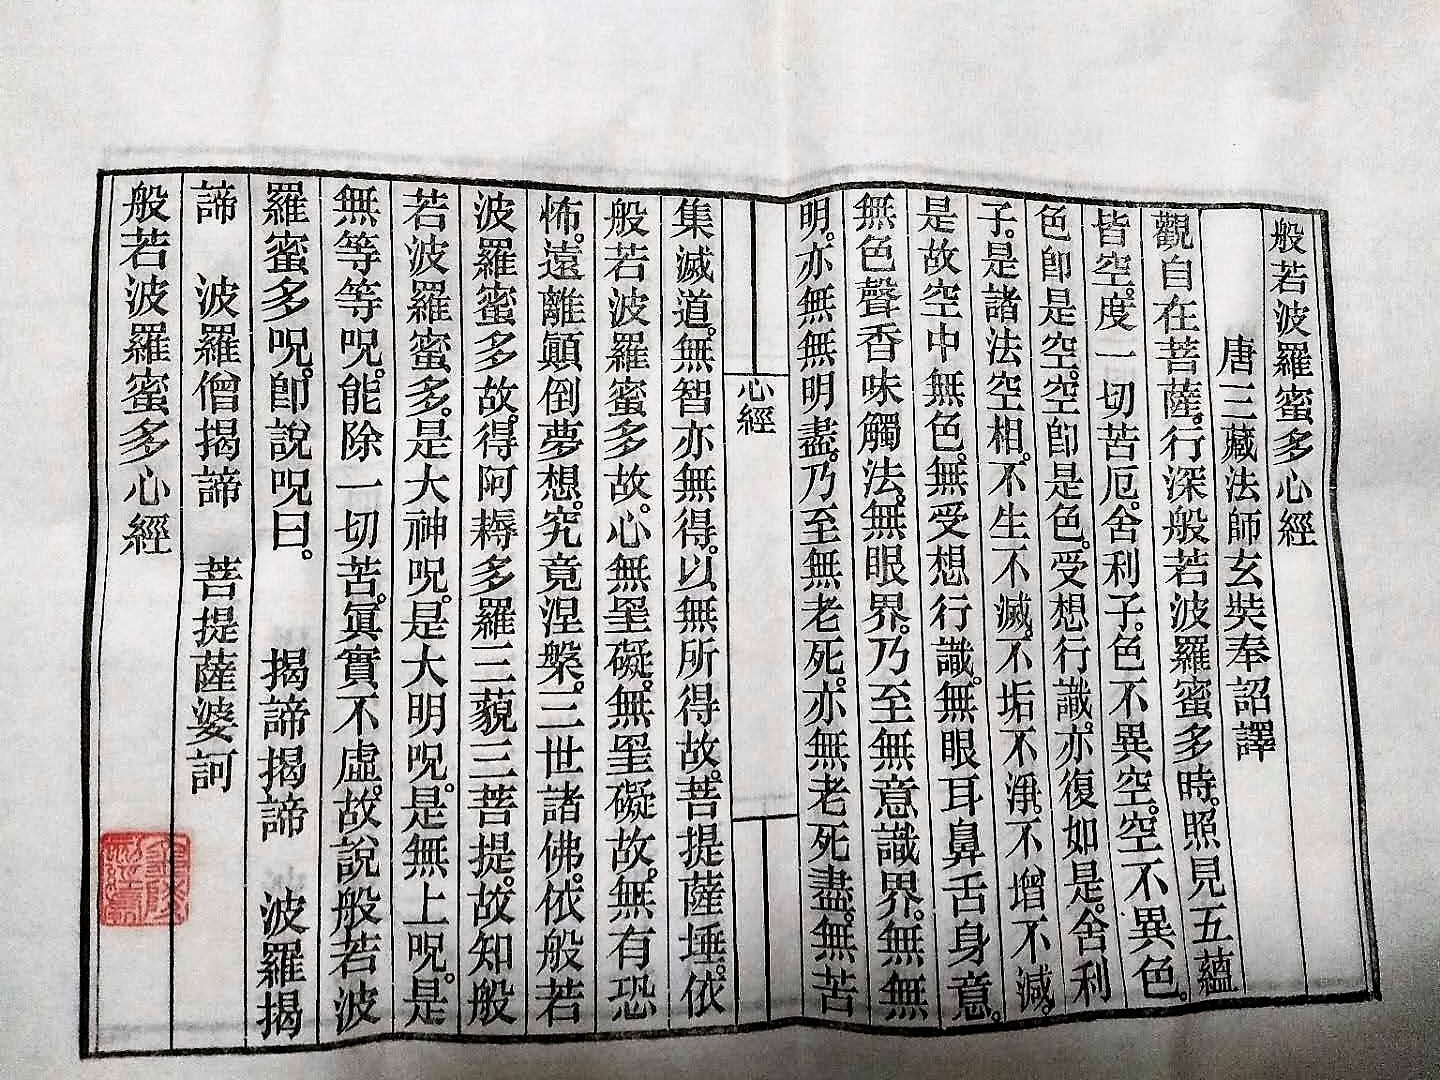 般若波羅蜜多心經
唐三藏法師玄奘奉詔譯
觀自在菩薩。行深般若波羅蜜多時。照見五蘊
皆空。度一切苦厄。舍利子。色不異空。空不異色。
色卽是空。空卽是色。受想行識。亦復如是。舍利
子。是諸法空相。不生不滅。不垢不淨。不增不減。
是故空中無色。無受想行識。無眼耳鼻舌身意。
無色聲香味觸法。無眼界。乃至無意識界。無無
明。亦無無明盡。乃至無老死。亦無老死盡。無苦
心經
集滅道。無智亦無得。以無所得故。菩提薩埵。依
般若波羅蜜多故。心無罣礙。無罣礙故。無有恐
怖。遠離顚倒夢想。究竟涅槃。三世諸佛。依般若
波羅蜜多故。得阿耨多羅三藐三菩提。故知般
若波羅蜜多。是大神呪。是大明呪。是無上呪。是
無等等呪。能除一切苦。眞實不虛。故說般若波
羅蜜多呪。卽說呪曰。 揭諦揭諦 波羅揭
諦 波羅僧揭諦 菩提薩婆訶
般若波羅蜜多心經